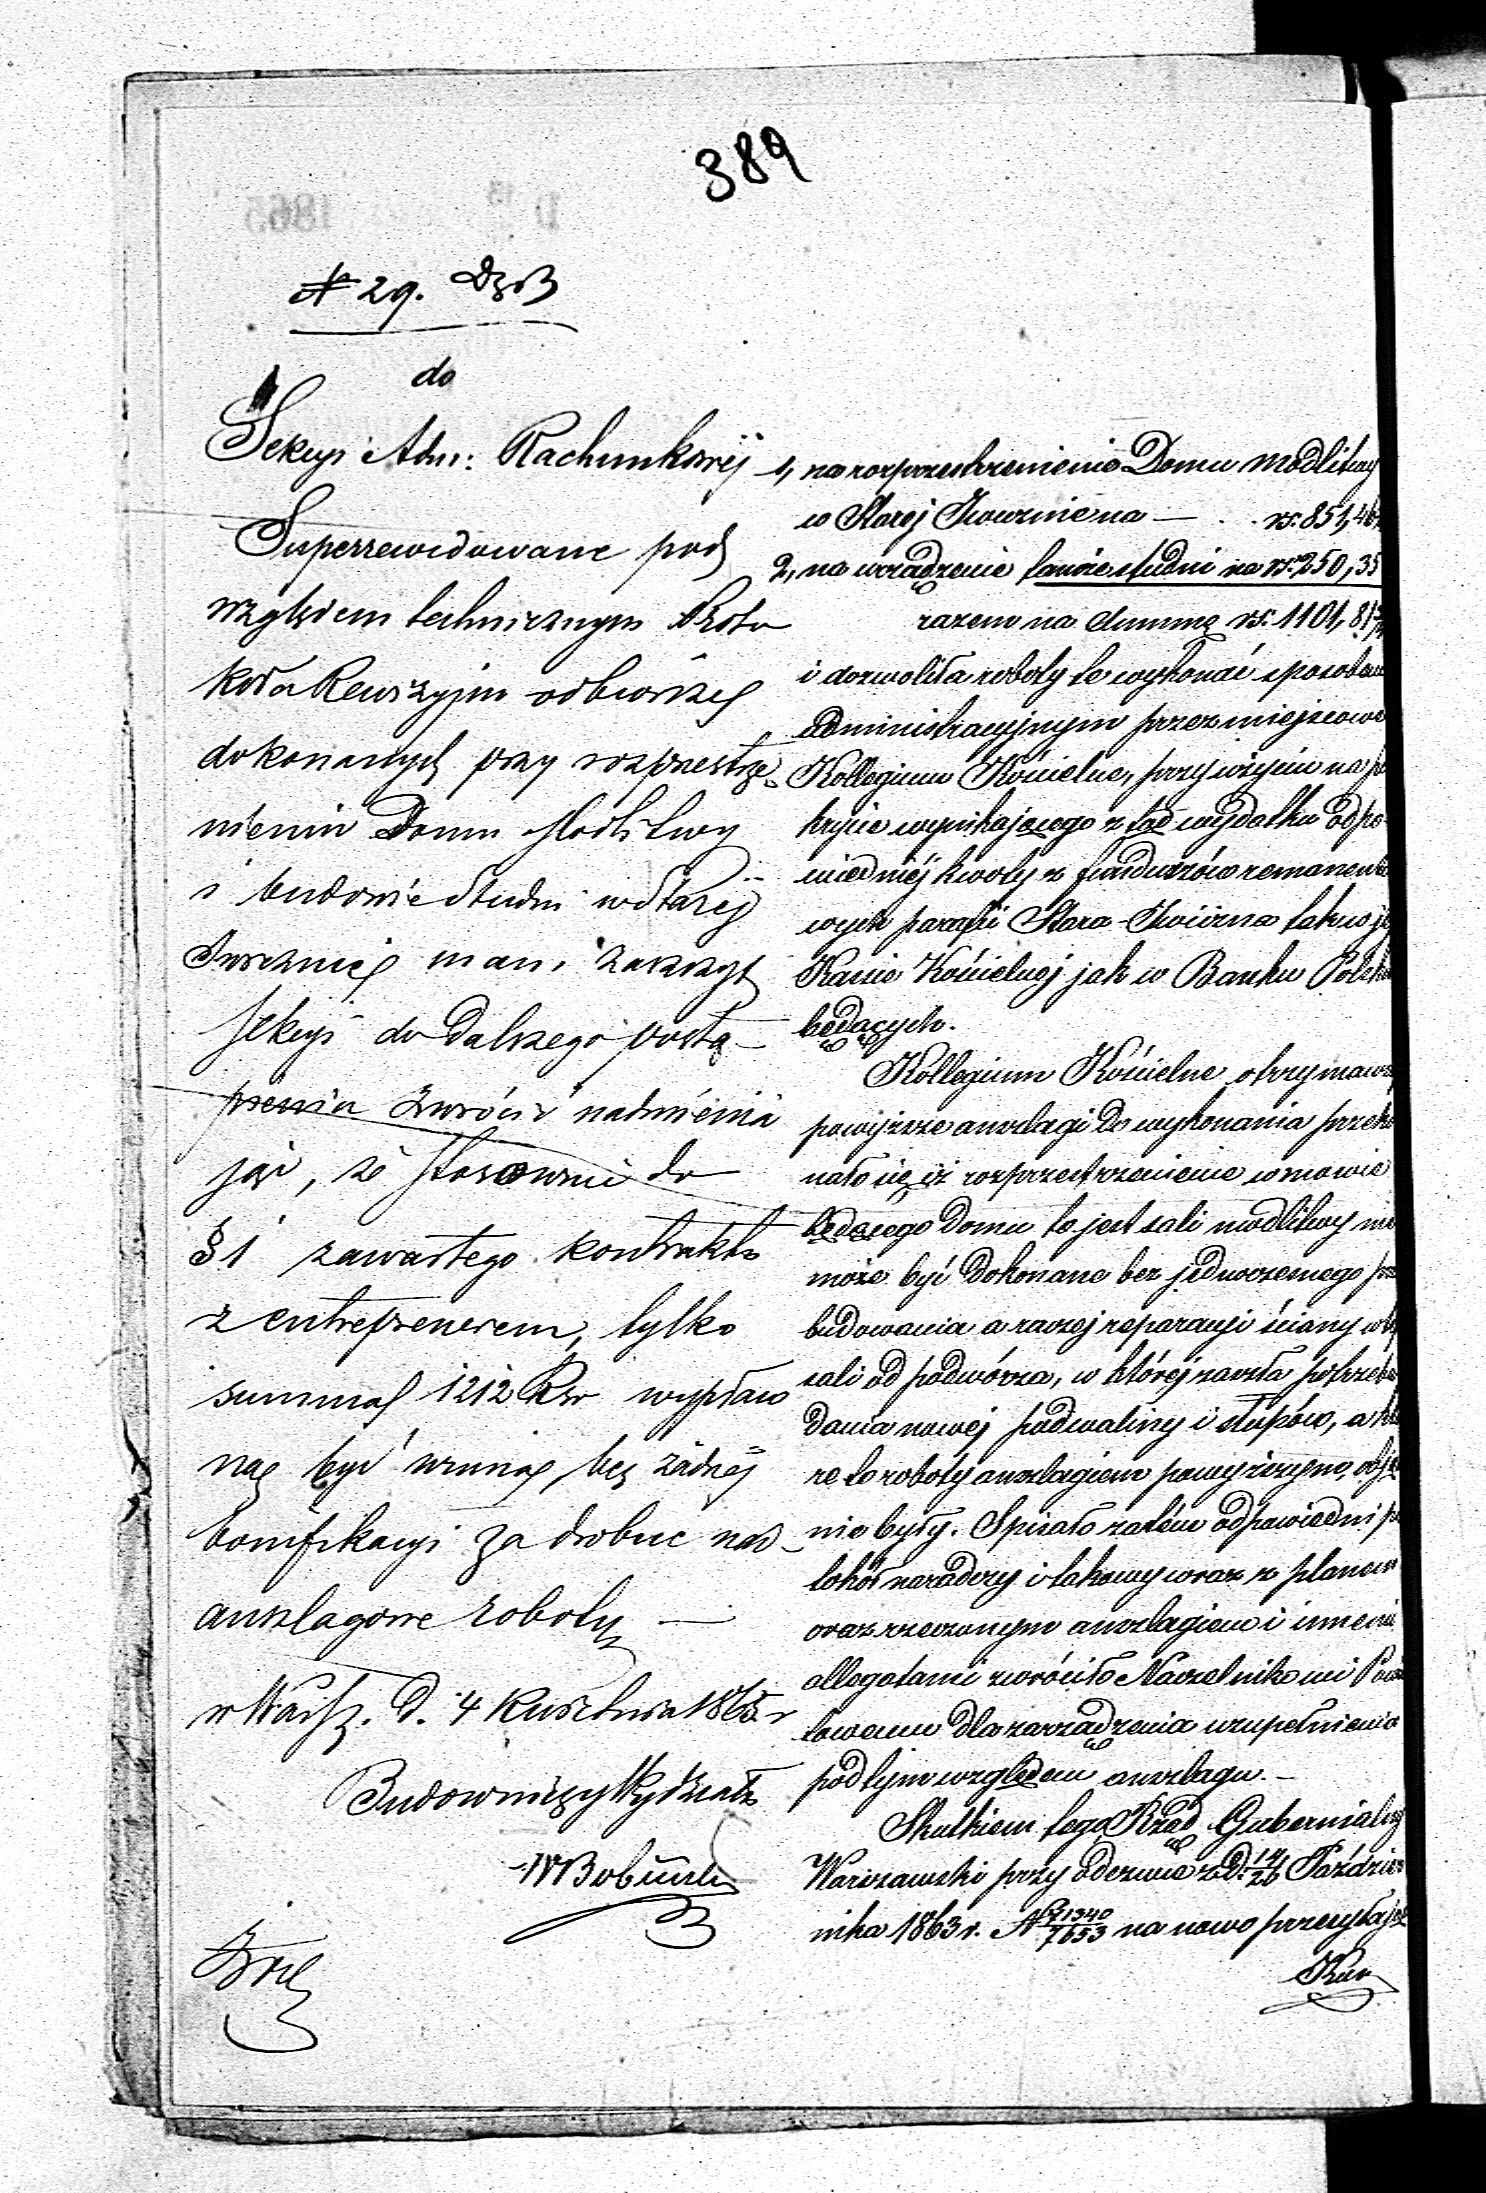 389
№ 29. DzB
do
Sekcyi Adm: Rachunkowéj
Superrewidowane pod
względem technicznym Proto
koła Rewizyjne odbiorcze
dokonanych przy rozprzestrze
nieniu Domu Modlitwy
i budowie Studni w Starej
Iwicznéj mam zaszczyt
Sekcyi do dalszego postą-
pienia zwrócić nadmienia
jąc, że stosownie do
§ 1 zawartego kontraktu
z entreprenerem, tylko
summa 1212 Rsr wypłaco
ną być winna, bez żadnéj
bonifikacyi za drobne nad-
anszlagowe roboty —
w Warsz. D. 4 Kwietnia 1865 r
Budowniczy Wydziału
1, na rozprzestrzenienie Domu modlitwy
w Starej Iwicznie na — . . rs: 851,46
2, na urządzenie tamże studni na rs: 250,35
razem na summę rs: 1101,81
i dozwoliła roboty te wykonać sposobem
administracyjnym przez miejscowe
Kollegium Kościelne, przy użyciu na po
krycie wynikającego z tąd wydatku odpo-
wiedniéj kwoty z funduszów remanento
wych parafii Stara-Iwiczna tak w jéj
Kassie Kościelnej jak w Banku Polskim
będących.
Kollegium Kościelne otrzymawszy
powyższe anszlagi do wykonania przeko
nało się iż rozprzestrzenienie w mowie
będącego domu to jest sali modlitwy nie
może być dokonane bez jednoczesnego prze
budowania a raczej reparacyi ściany w téj
sali od podwórza, w któréj zaszła potrzeba
dania nowej podwaliny i słupów, a któ
re to roboty anszlagiem powyższym objęte
nie były. Spisało zatém odpowiedni pro
tokół naradczy i takowy wraz z planem
oraz rzeczonym anszlagiem i innemi
allegatami zwróciło Naczelnikowi Powia
towemu dla zarządzenia uzupełnienia
pod tym względem anszlagu. —
Skutkiem tego Rząd Gubernialny
Warszawski przy odezwie z d. 14/26 Paździer
nika 1863 r. № 71340/7653 na nowo przesyłając